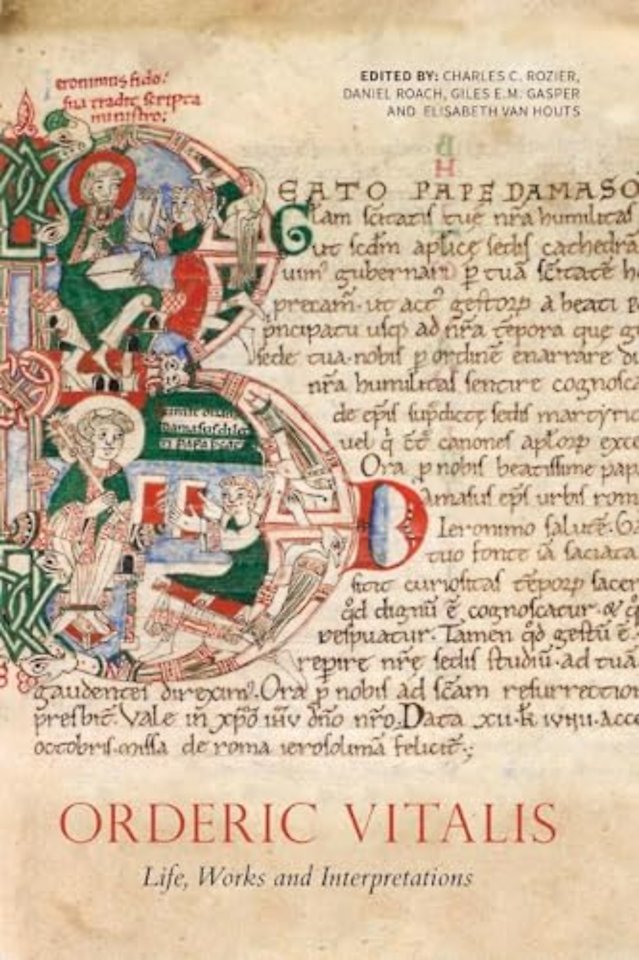 EDITED BY: CHARLES C. ROZIER,
DANIEL ROACH, GILES E.M. GASPER
AND ELISABETH VAN HOUTS
eronimus fido:
sua tradit scripta
ministro;
EATO PAPE DAMASO
Glam scitatis tue nra humilitas
ut scdm aplice sedis cathedra
gubernari p tua scitate
precam. ut act gestorp a beati
principatu usq ad nra tepora que
sede tua. nobis p ordine enarrare
nra humilitas sentire cognosca
de epis supdicte sedis martyrio
uel canones aplorp exce
Ora p nobis beatissime pap
DAmasus eps urbis rom
Ieronimo salute. Ga
tuo fonte ia saciata
curiositas teporp sacer
qd dignu e cognoscatur.
respuatur. Tamen qd gestu e
repire nre sedis studiu. ad tua
gaudentes direxim. Ora p nobis ad scam resurrection
presbit. Vale in xpo ihu dno nro. Data
octobris. missa de roma ierosolima felicit.;
ORDERIC VITALIS
Life, Works and Interpretations